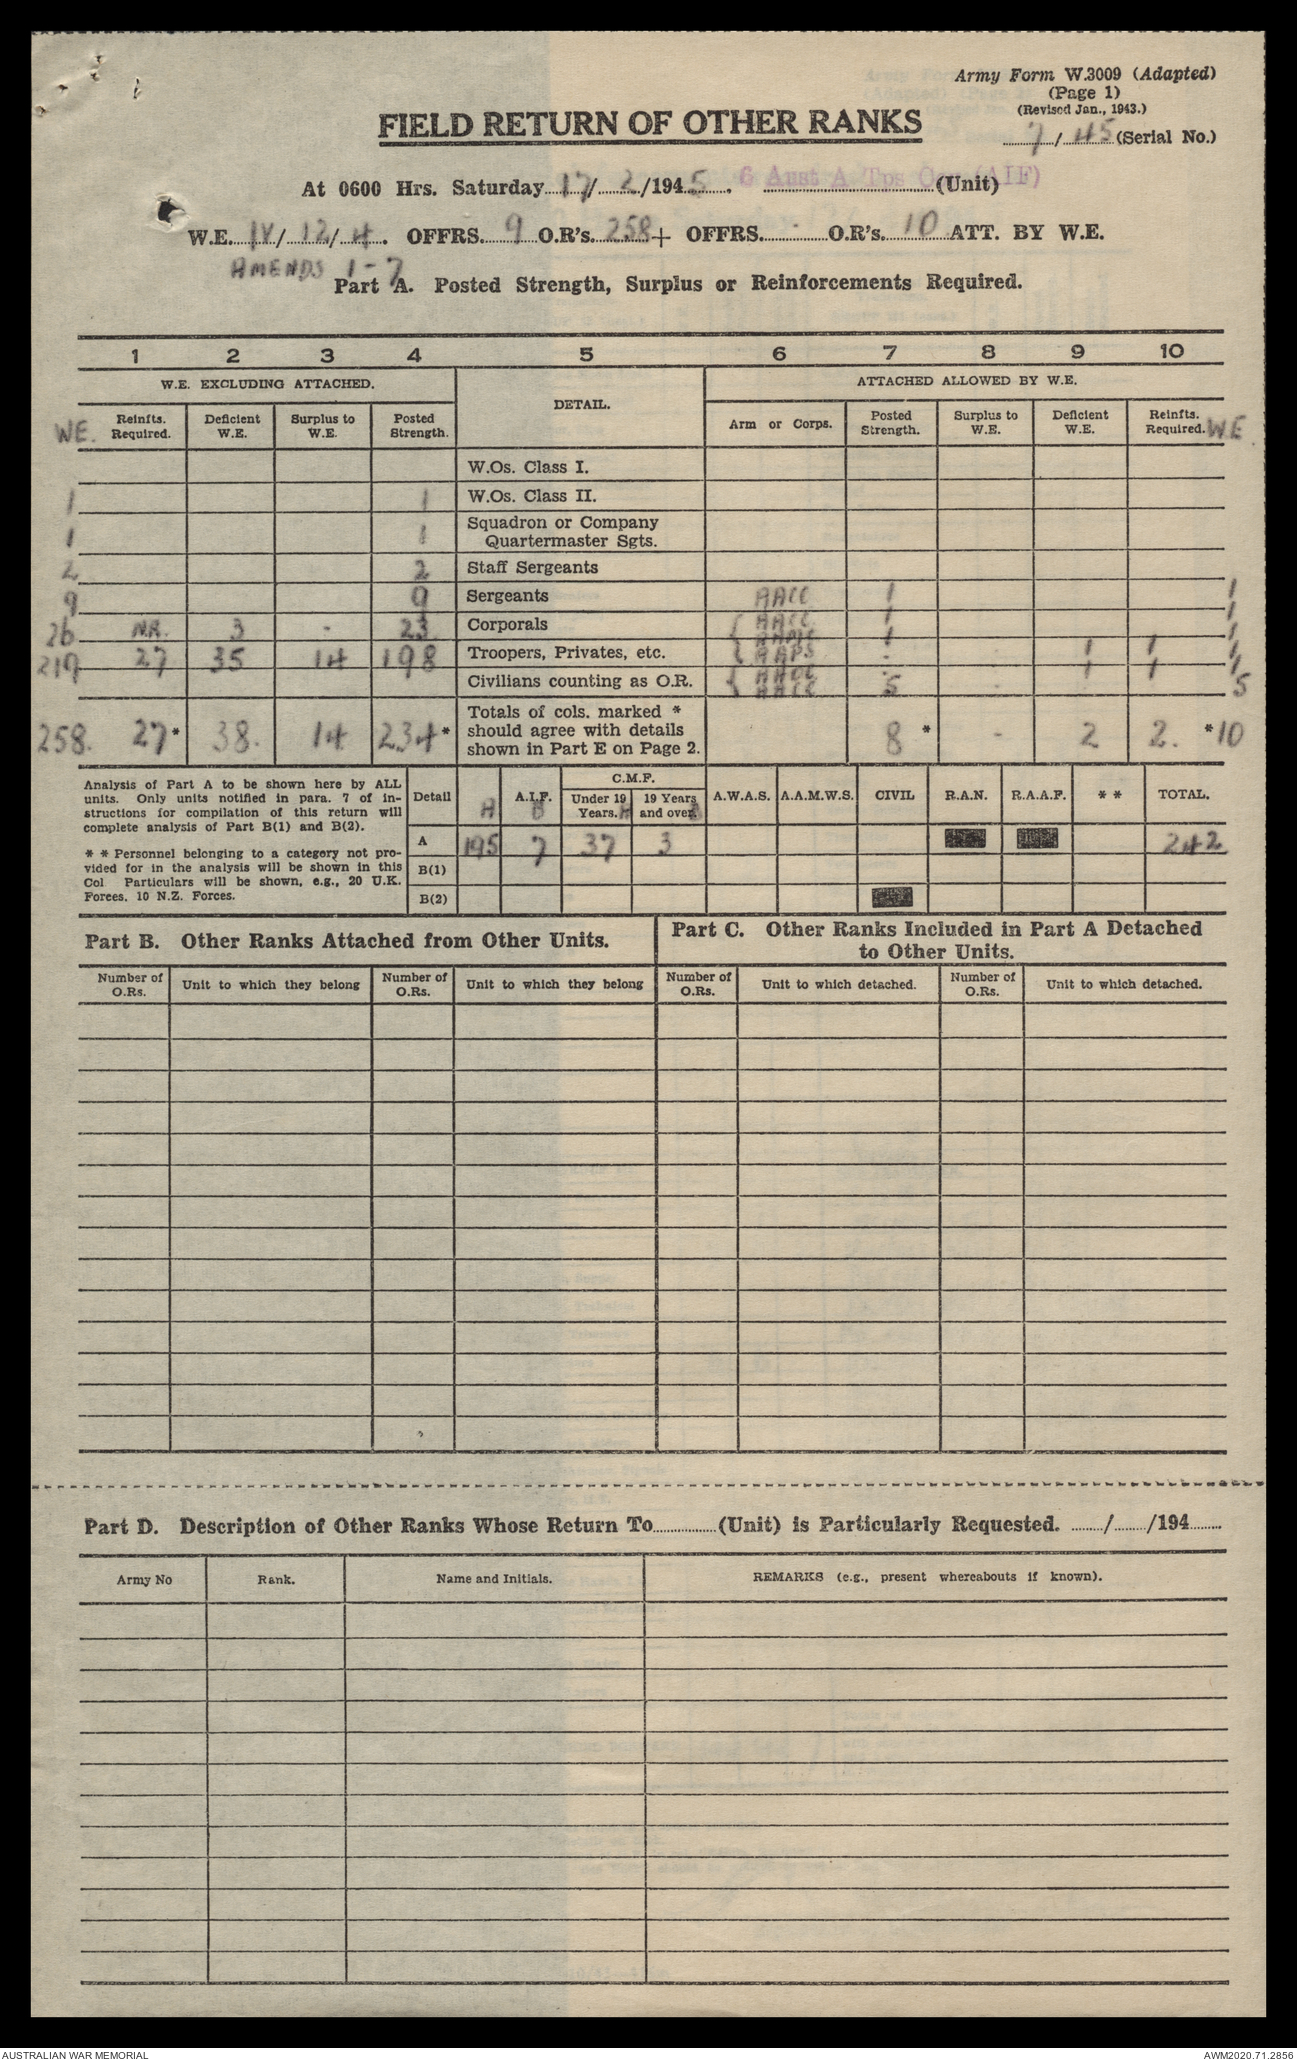 Army Form W.3009 (Adapted)
(Page 1)
(Revised Jan., 1943.)
FIELD RETURN OF OTHER RANKS
7/45 (Serial No.)
At 0600 Hrs. Saturday 17/2/1945. 6 Aust A Tps Coy (AIF) (Unit)
W.E. IV/12/4. OFFRS. 9 O.R's. 258 + OFFRS. - O.R's. 10 ATT. BY W.E.
AMENDS 1-7
Part A. Posted Strength, Surplus or Reinforcements Required.
1 2 3 4 5 6 7 8 9 10
W.E. EXCLUDING ATTACHED. DETAIL. ATTACHED ALLOWED BY W.E.
WE. Reinfts. Required. Deficient W.E. Surplus to W.E. Posted Strength. Arm or Corps. Posted Strength. Surplus to W.E. Deficient W.E. Reinfts. Required. W.E
W.Os. Class I.
1 1 W.Os. Class II.
1 1 Squadron or Company Quartermaster Sgts.
2 2 Staff Sergeants
9 9 Sergeants AACC 1 1
26 N.R. 3 - 23 Corporals { AACC 1 1
AAMC 1 1
219 27 35 14 198 Troopers, Privates, etc. { AAPS - 1 1 1
Civilians counting as O.R. { AAOC - 1 1 1
AACC 5 - 5
258. 27* 38. 14 234* Totals of cols. marked * should agree with details shown in Part E on Page 2. 8 * - 2 2. *10
Analysis of Part A to be shown here by ALL
units. Only units notified in para. 7 of in-
structions for compilation of this return will
complete analysis of Part B(1) and B(2).
* * Personnel belonging to a category not pro-
vided for in the analysis will be shown in this
Col Particulars will be shown, e.g., 20 U.K.
Forces, 10 N.Z. Forces.
Detail A A.I.F. B C.M.F. Under 19 Years. A 19 Years and over. B A.W.A.S. A.A.M.W.S. CIVIL R.A.N. R.A.A.F. * * TOTAL.
A 195 7 37 3 242
B(1)
B(2)
Part B. Other Ranks Attached from Other Units.
Part C. Other Ranks Included in Part A Detached
to Other Units.
Number of O.Rs. Unit to which they belong Number of O.Rs. Unit to which they belong Number of O.Rs. Unit to which detached. Number of O.Rs. Unit to which detached.
Part D. Description of Other Ranks Whose Return To (Unit) is Particularly Requested. / /194
Army No Rank. Name and Initials. REMARKS (e.g., present whereabouts if known).
AUSTRALIAN WAR MEMORIAL AWM2020.71.2856